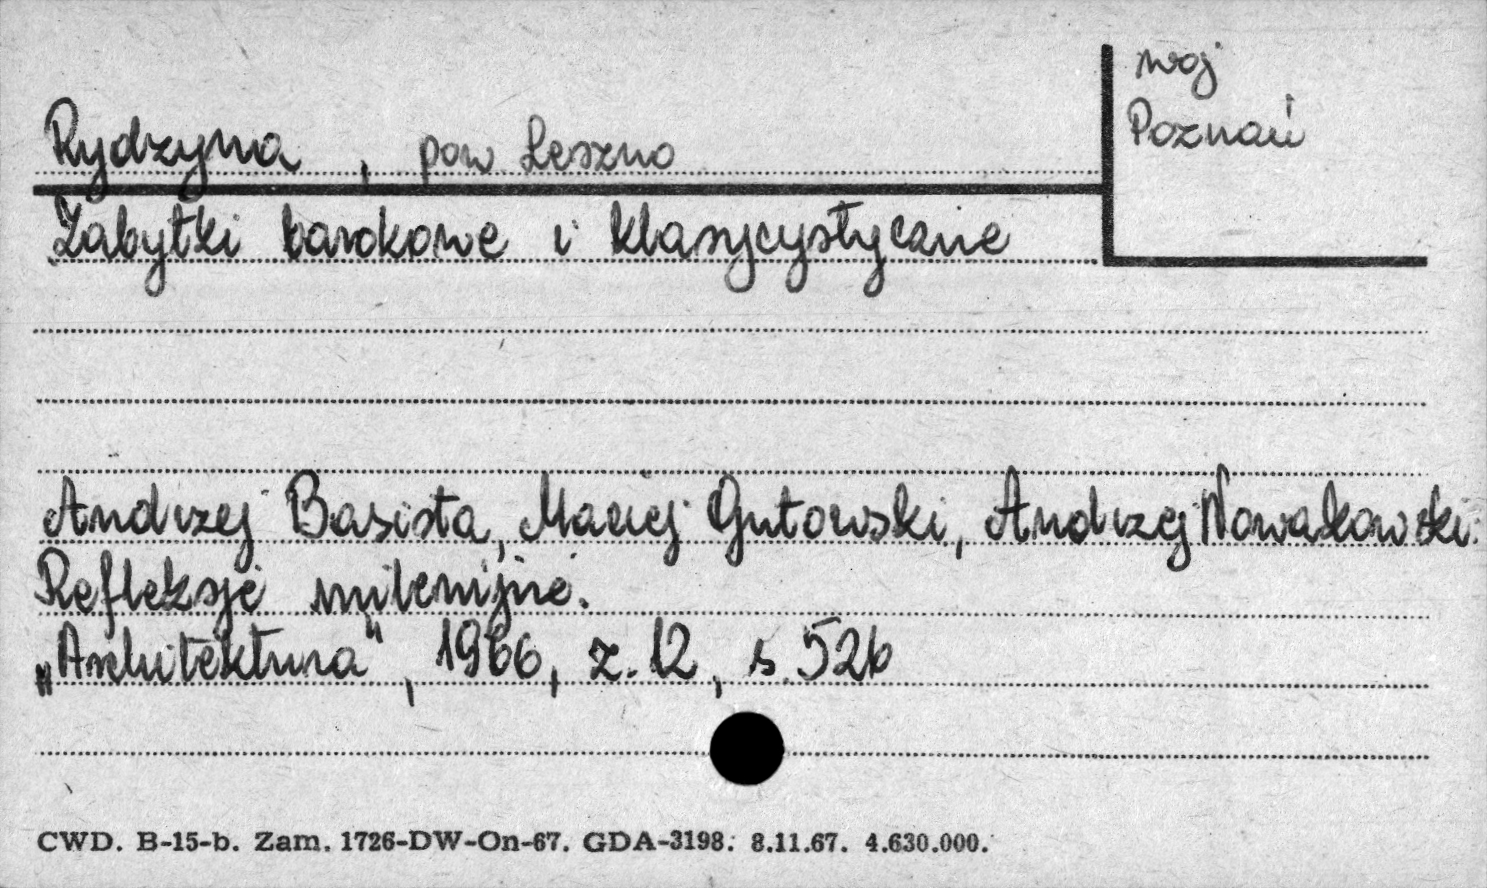 woj
Poznań
Rydzyna, pow Leszno
Zabytki barokowe i klasycystyczne
Andrzej Basista, Maciej Gutowski, Andrzej Nowakowski:
Refleksje milenijne.
„Architektura", 1966, z. 12, s. 526
CWD. B-15-b. Zam. 1726-DW-On-67. GDA-3198. 8.11.67. 4.630.000.